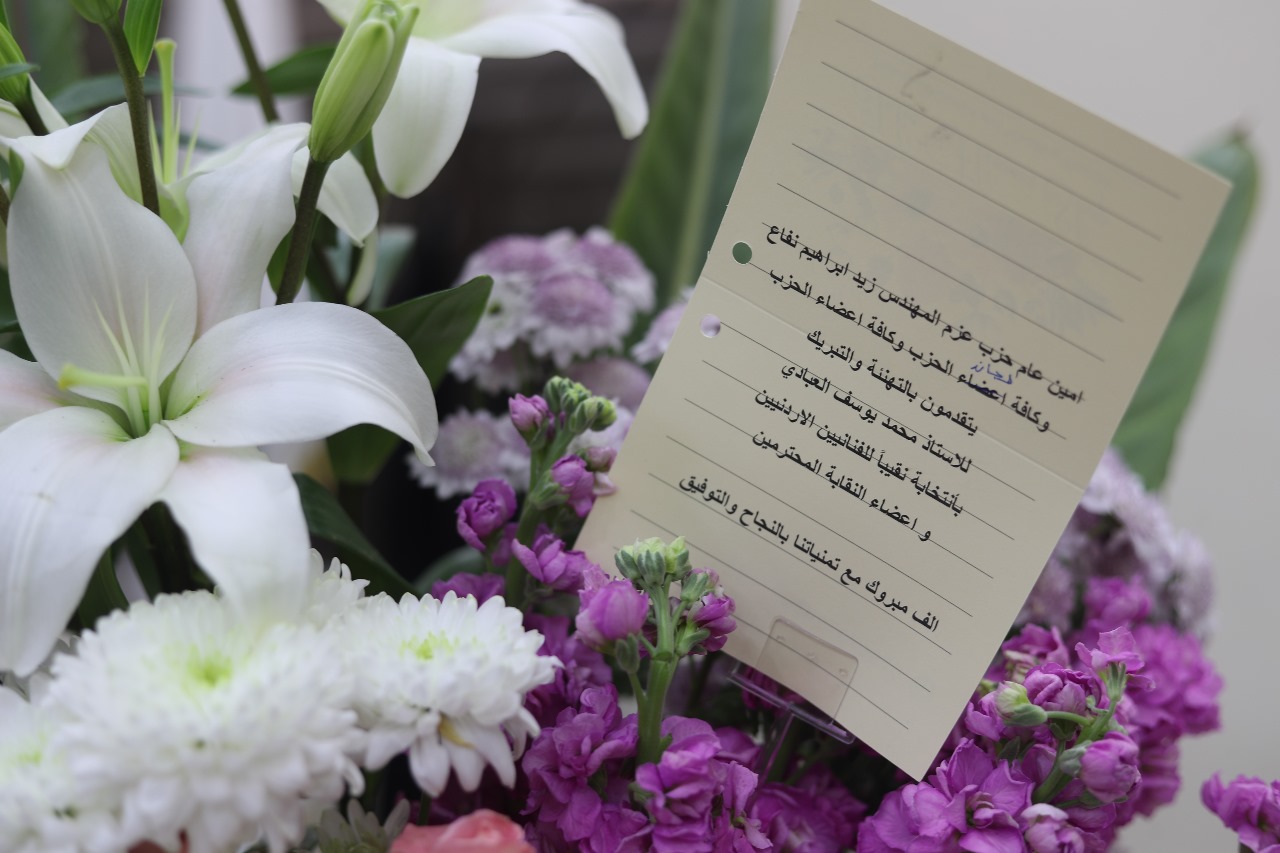 امين عام حزب عزم المهندس زيد ابراهيم نفاع
وكافة اعضاء الحزب وكافة اعضاء الحزب
يتقدمون بالتهنئة والتبريك
للاستاذ محمد يوسف العبادي
بأنتخابة نقيباً للفنانيين الاردنيين
و اعضاء النقابة المحترمين
الف مبروك مع تمنياتنا بالنجاح والتوفيق